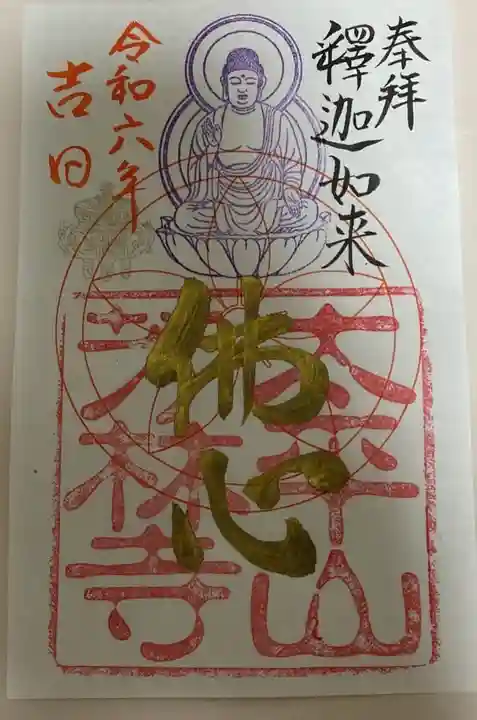 奉拝
釋迦如来
佛心
太平山
芳林寺
令和六年
吉日